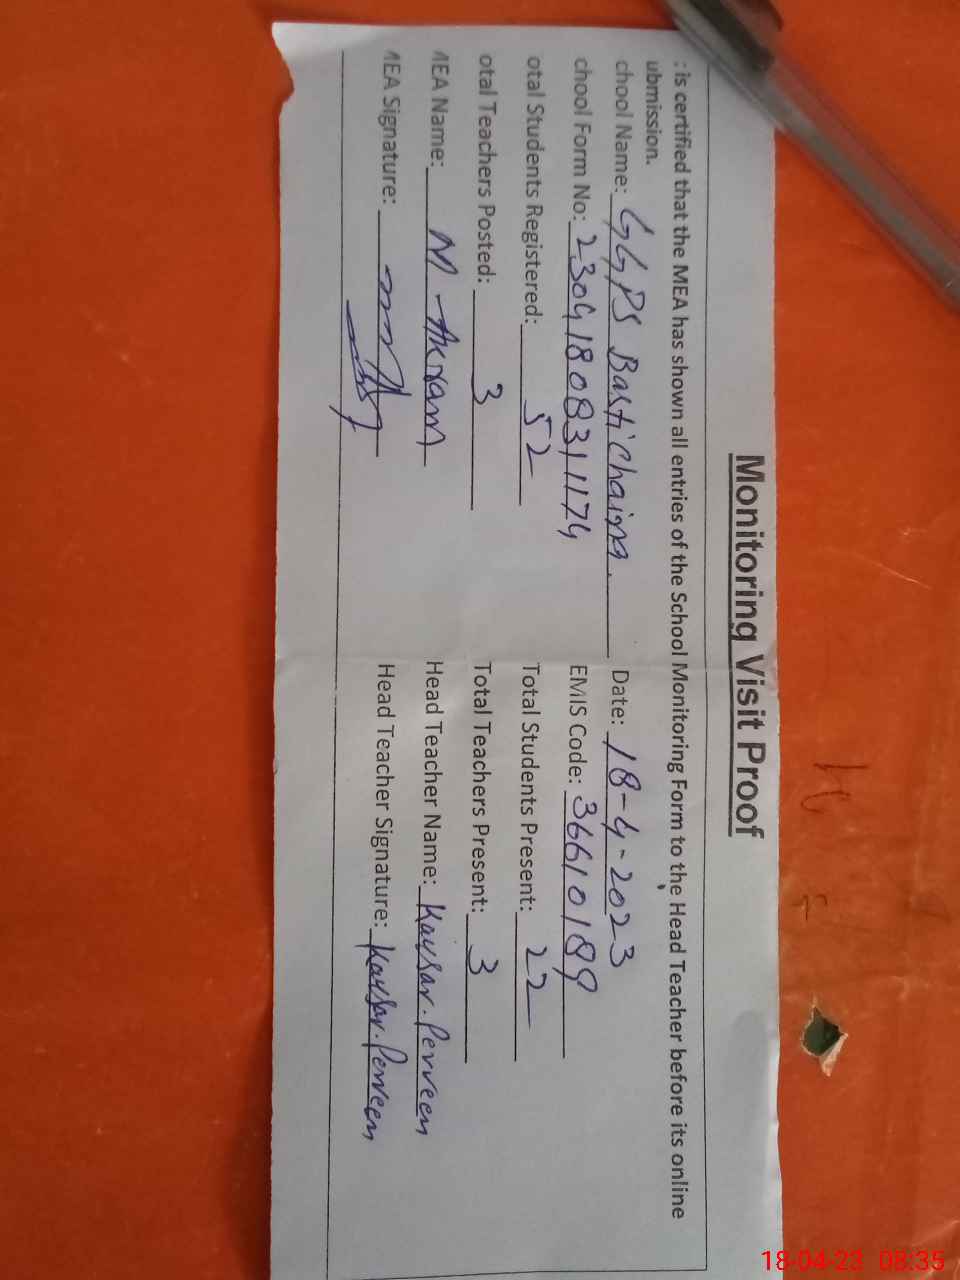 Monitoring Visit Proof
: is certified that the MEA has shown all entries of the School Monitoring Form to the Head Teacher before its online
ubmission.
chool Name: GGPS Basti Chaina. Date: 18-4-2023
chool Form No: 23041808311174 EMIS Code: 36610189
otal Students Registered: 52 Total Students Present: 22
otal Teachers Posted: 3 Total Teachers Present: 3
MEA Name: M Akram Head Teacher Name: Kaysar. Perveen
MEA Signature: Head Teacher Signature: Kaysar. Perveen
18-04-23 08:35